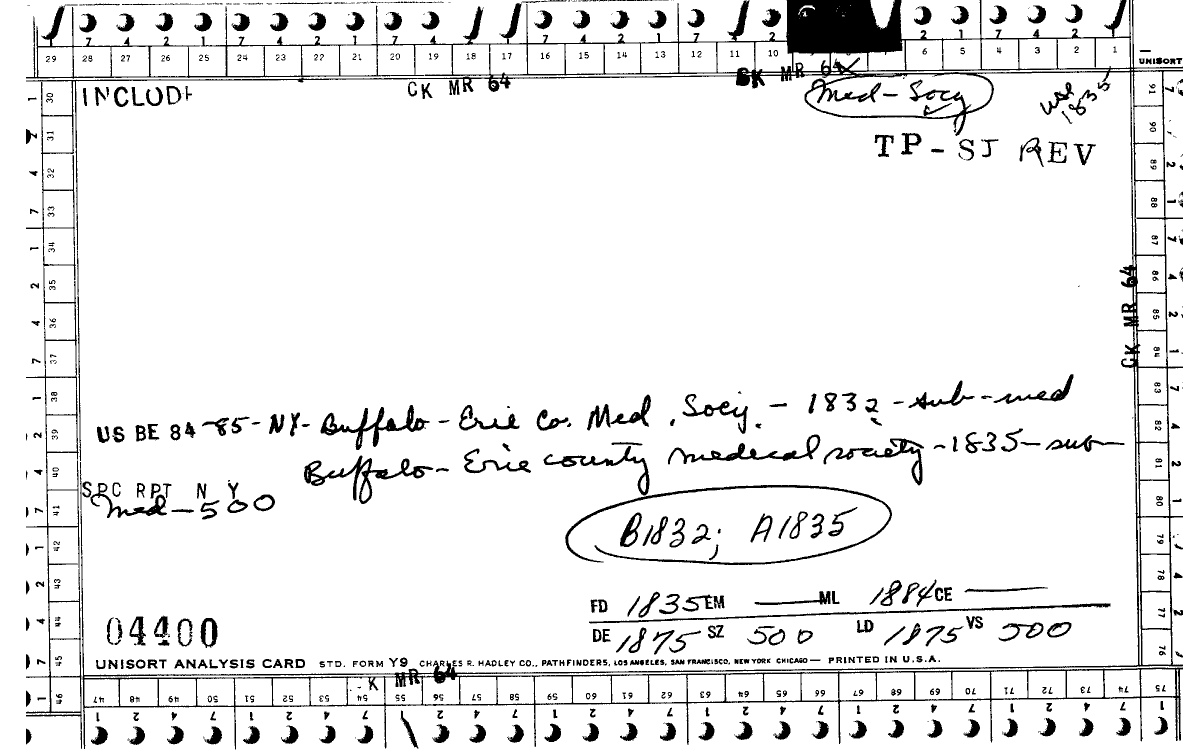 7 4 2 1 7 4 2 1 7 4 7 4 2 1 7 4 2 1 7 2 2 1 7 4 2
29 28 27 26 25 24 23 22 21 20 19 18 17 16 15 14 13 12 11 10 6 5 4 3 2 1
UNISORT
INCLUDE
CK MR 64
CK MR 64
Med-Socy
use 1835
TP-SJ REV
CK MR 64
US BE 84-85-NY-Buffalo-Erie Co. Med. Socy. - 1832-sub-med
Buffalo-Erie county medical society-1835-sub-
SPC RPT N Y
med-500
B1832; A1835
FD 1835 EM — ML 1884 CE —
DE 1875 SZ 500 LD 1875 VS 500
04400
UNISORT ANALYSIS CARD STD. FORM Y9 CHARLES R. HADLEY CO., PATHFINDERS, LOS ANGELES, SAN FRANCISCO, NEW YORK CHICAGO — PRINTED IN U.S.A.
K MR 64
30 31 32 33 34 35 36 37 38 39 40 41 42 43 44 45 46
91 90 89 88 87 86 85 84 83 82 81 80 79 78 77 76
47 48 49 50 51 52 53 54 55 56 57 58 59 60 61 62 63 64 65 66 67 68 69 70 71 72 73 74 75